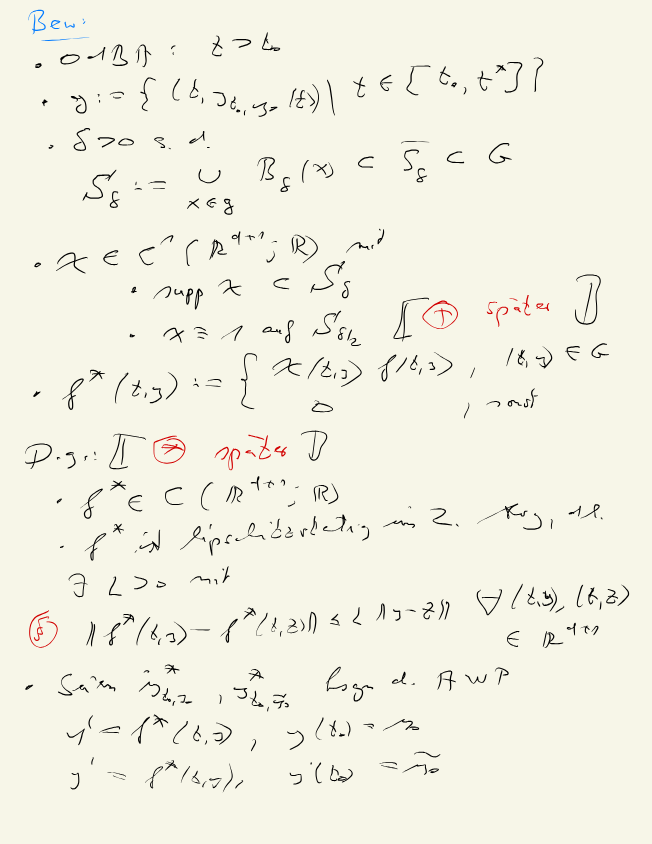 Bew:
• OdBA : t > t₀
• γ := { (t, y_{t₀,y₀}(t)) | t ∈ [t₀, t*] }
• δ > 0 s. d.
S_δ := ∪_{x∈γ} B_δ(x) ⊂ \overline{S_δ} ⊂ G
• χ ∈ C¹(ℝ^{d+1}; ℝ) mit
• supp χ ⊂ S_δ
• χ ≡ 1 auf S_{δ/2} ⟦ (+) später ⟧
• f*(t,y) := { χ(t,y) f(t,y) , (t,y) ∈ G
0 , sonst
D.g.: ⟦ (*) später ⟧
• f* ∈ C(ℝ^{d+1}; ℝ)
• f* ist lipschitzstetig im 2. Arg, d.h.
∃ L > 0 mit
(§) ‖f*(t,y) − f*(t,z)‖ ≤ L ‖y−z‖ ∀ (t,y), (t,z)
∈ ℝ^{d+1}
• Seien y*_{t₀,y₀}, y*_{t₀,ỹ₀} Lsgn d. AWP
y' = f*(t,y), y(t₀) = y₀
y' = f*(t,y), y(t₀) = ỹ₀